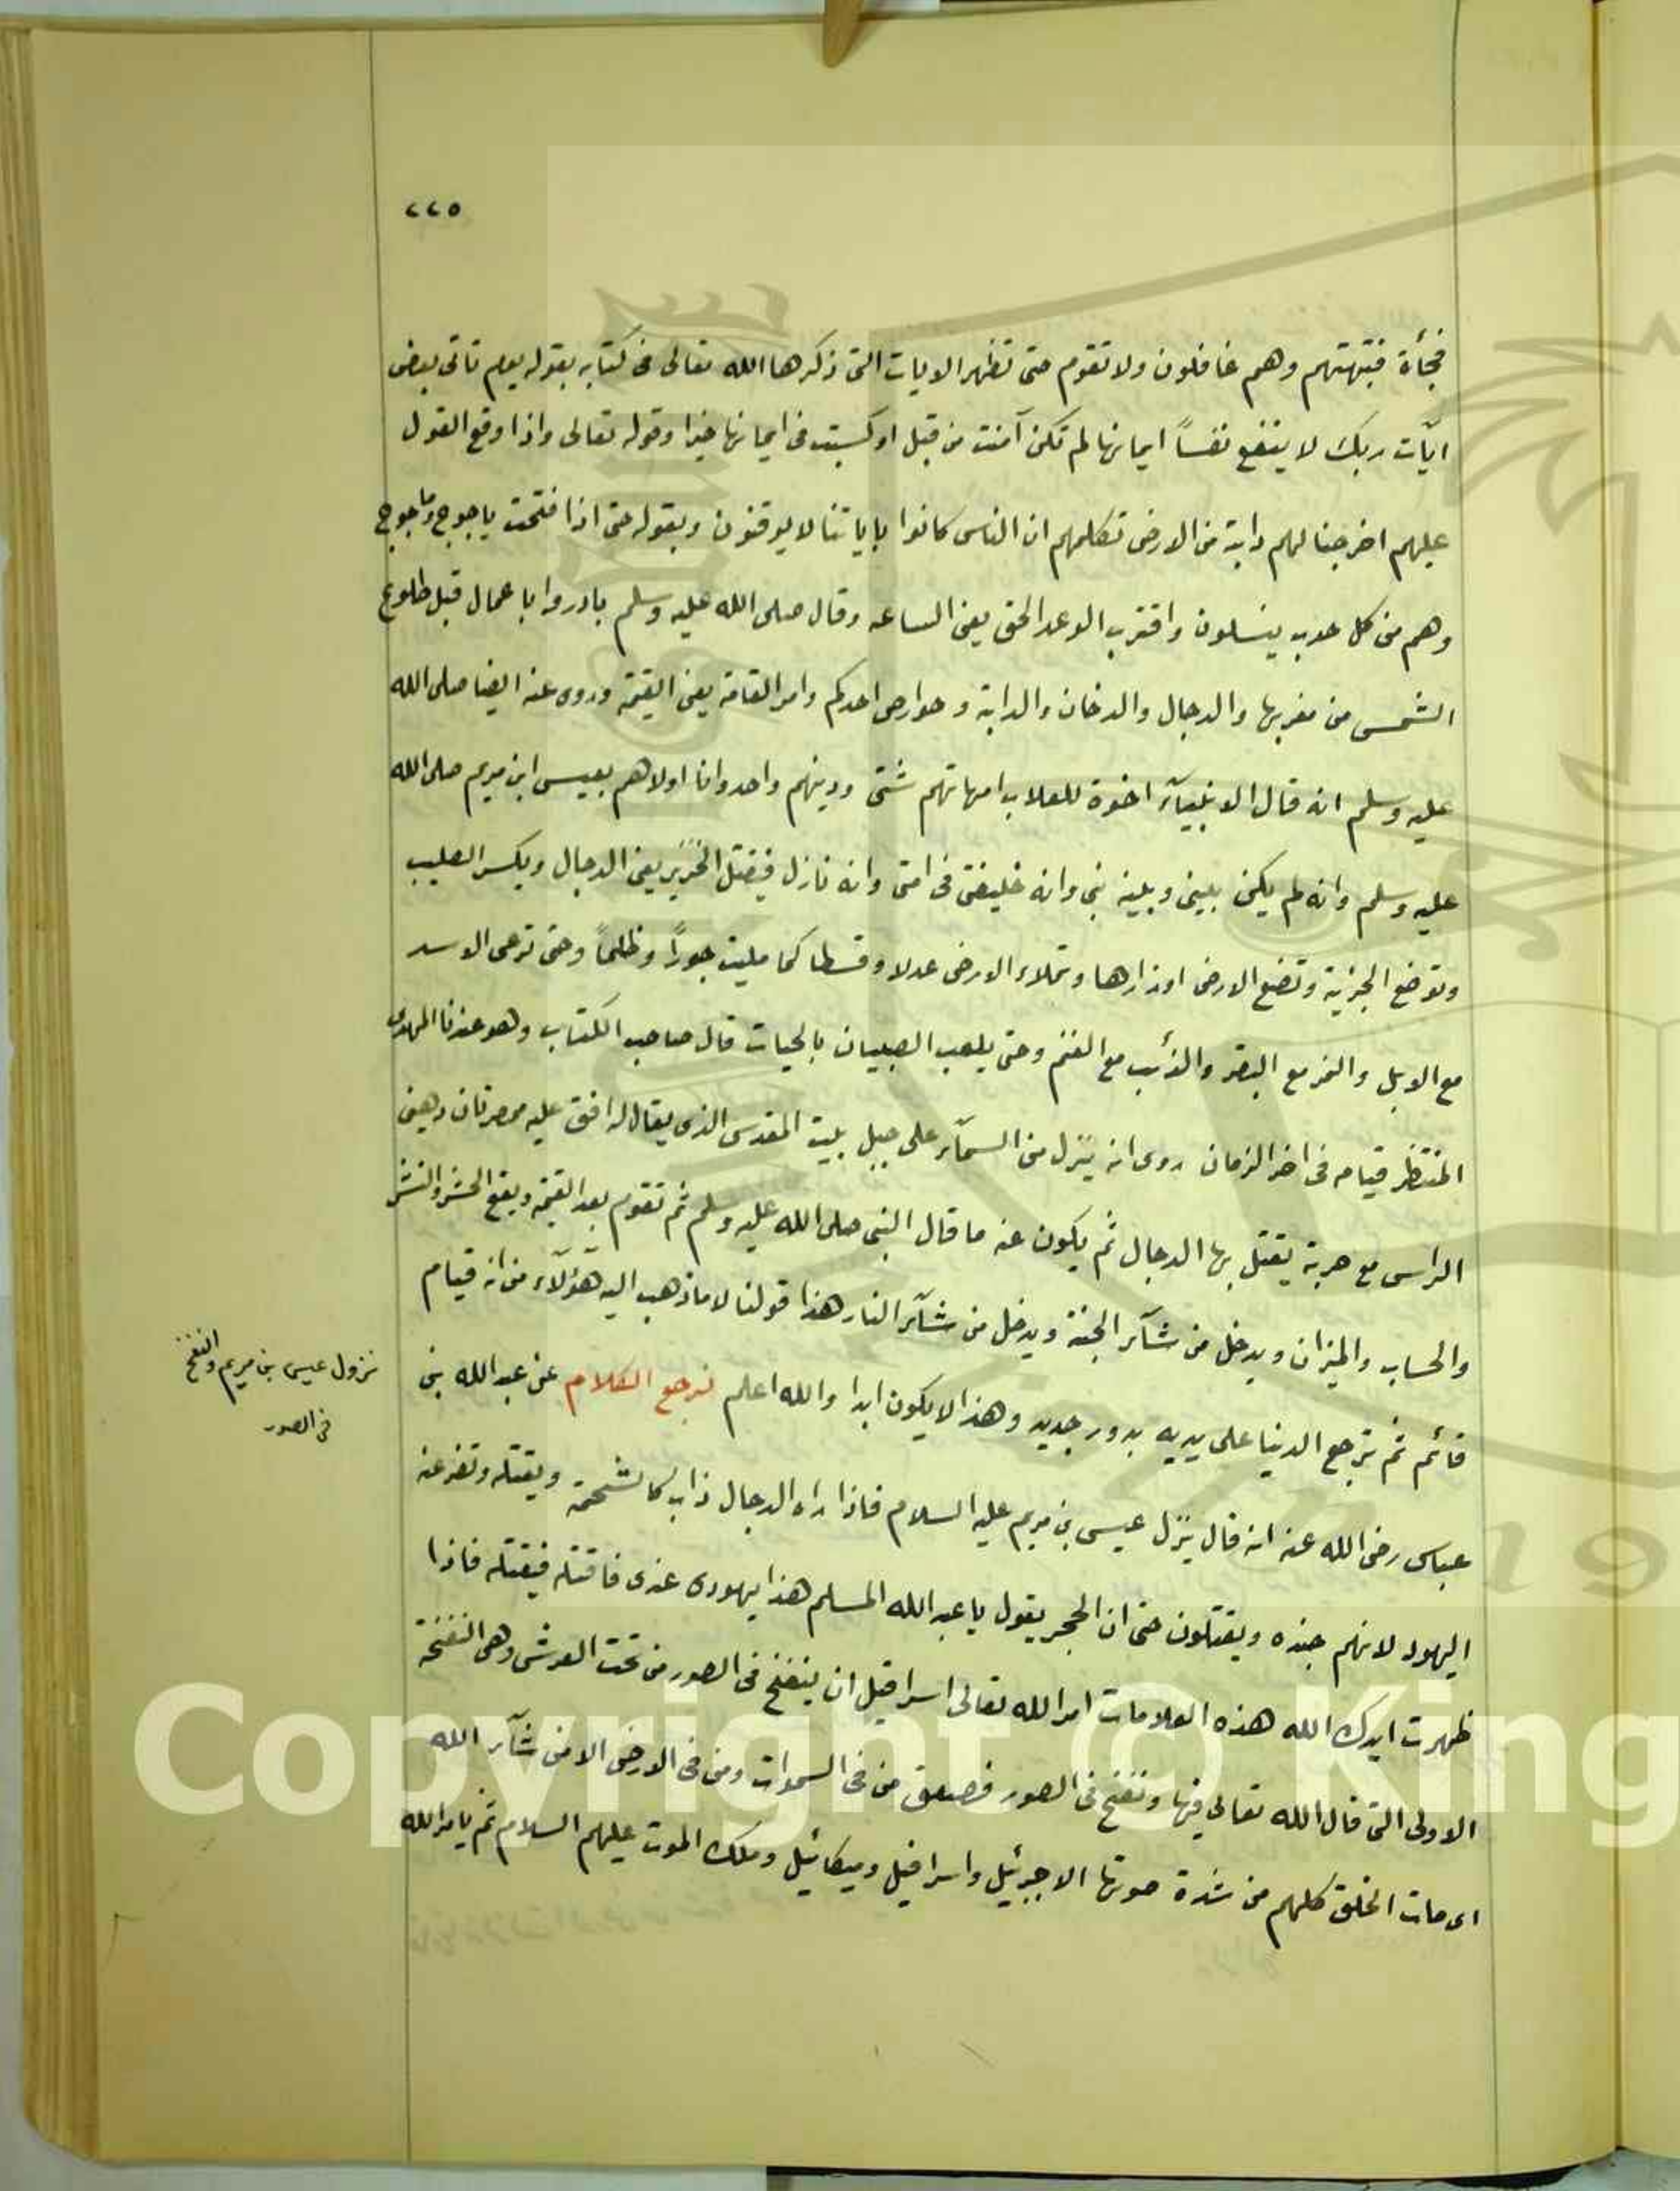 ٢٢٥
فجأة فتبهتهم وهم غافلون ولا تقوم حتى تظهر الايات التى ذكرها الله تعالى فى كتابه بقوله يوم تاتى بعض
ايآت ربك لا ينفع نفساً ايمانها لم تكن آمنت من قبل او كسبت فى ايمانها خيرا وقوله تعالى واذا وقع القول
عليهم اخرجنا لهم دابة من الارض تكلمهم ان الناس كانوا باياتنا لا يوقنون وبقوله حتى اذا فتحت ياجوج وماجوج
وهم من كل حدب ينسلون واقترب الوعد الحق يعنى الساعه وقال صلى الله عليه وسلم بادروا باعمال قبل طلوع
الشمس من مغربها والدجال والدخان والدابة وحوارص احدكم وامر القامة يعنى القيمة وروى عنه ايضا صلى الله
عليه وسلم انه قال الانبيآء اخوة للعلاب امهاتهم شتى ودينهم واحد وانا اولاهم بعيسى ابن مريم صلى الله
عليه وسلم وانه لم يكن بلينى وبلينه نبى وانه خليفتى فى امتى وانه نازل فيقتل الخنزير يعنى الدجال ويكسر الصليب
وتوضع الجزية وتضع الارض اوزارها وتملاء الارض عدلا وقسطا كما مليت جوراً وظلماً وحتى ترعى الاسد
مع الابل والنمر مع البقر والذئب مع الغنم وحتى يلعب الصبيان بالحيات قال صاحب الكتاب وهو عندنا المهدى
المنتظر قيامه فى اخر الزمان روى انه ينزل من السمآء على جبل بليت المقدس الذى يقال له افق عليه ممصرتان دهين
الراس مع حربة يقتل بها الدجال ثم يكون عنه ما قال النبى صلى الله عليه وسلم ثم تقوم بعد القيمة ويقع الحشر والنشر
والحساب والميزان ويدخل من شآء الجنة ويدخل من شآء النار هذا قولنا لا ما ذهب اليه هؤلآء من انه قيام
قائم ثم ترجع الدنيا على يديه بدور جديد وهذا لا يكون ابدا والله اعلم نرجع الكلام عن عبد الله بن
نزول عيسى بن مريم والنفخ
فى الصور
عباس رضى الله عنه انه قال ينزل عيسى بن مريم عليه السلام فاذا راه الدجال ذاب كما لشحمة ويقتله وتفر عنه
اليهود لانهم جنده ويقتلون حتى ان الحجر يقول يا عبد الله المسلم هذا يهودى عندى فاقتله فيقتله فاذا
ظهرت ايدك الله هذه العلامات امر الله تعالى اسرافيل ان ينفخ فى الصور من تحت العرش وهى النفخة
الاولى التى قال الله تعالى فيها ونفخ فى الصور فصعق من فى السموات ومن فى الارض الا من شآء الله
اى مات الخلق كلهم من شدة صوتها الا جبرئيل واسرافيل وميكائيل وملك الموت عليهم السلام ثم يامر الله
Copyright © King